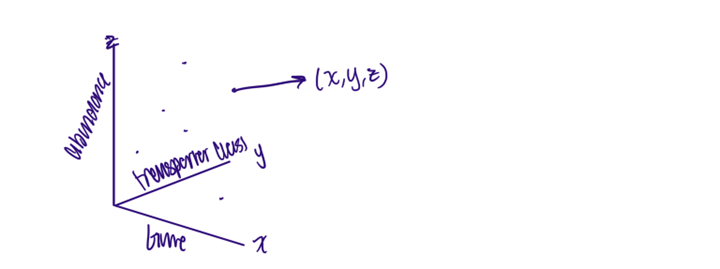 z
(x,y,z)
abundance
transporter class
y
time
x